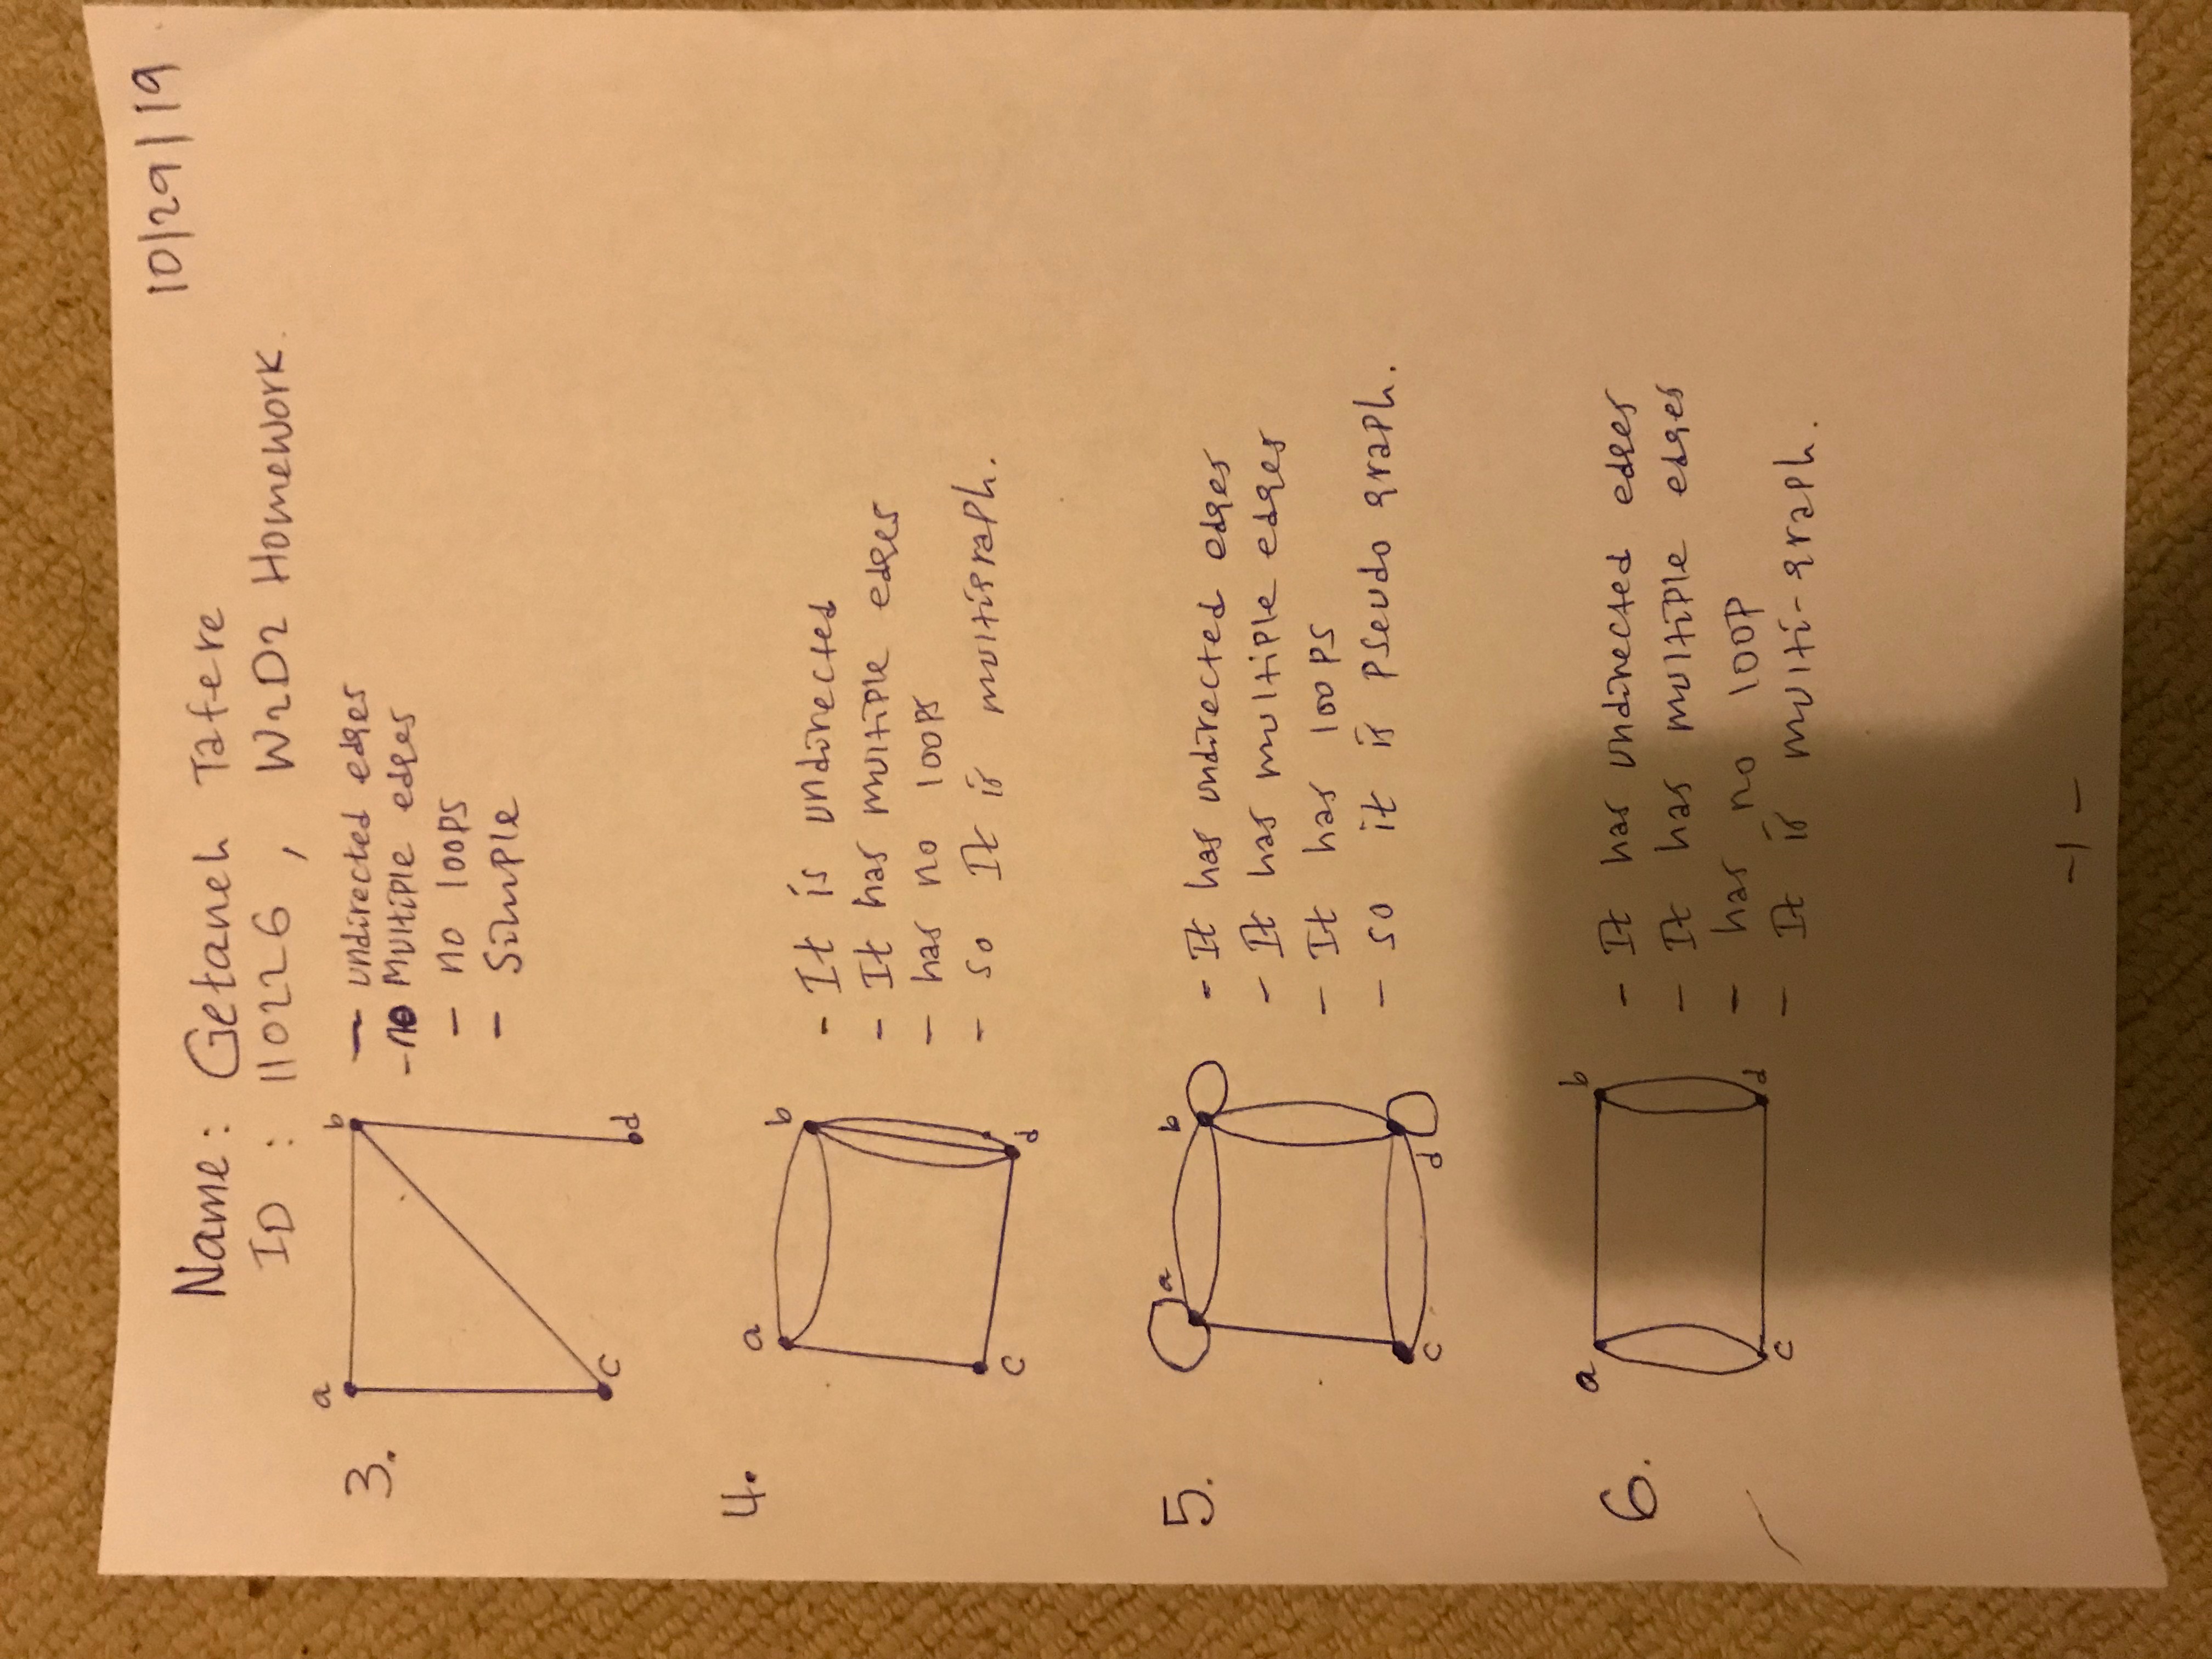 10/29/19
Name: Getaneh Tafere
ID : 110226 , W2D2 Homework.
3.
a
b
c
d
- undirected edges
- no Multiple edges
- no loops
- Simple
4.
a
b
c
d
- It is undirected
- It has multiple edges
- has no loops
- so It is multigraph.
5.
a
b
c
d
- It has undirected edges
- It has multiple edges
- It has loops
- so it is pseudo graph.
6.
a
b
c
d
- It has undirected edges
- It has multiple edges
- has no loop
- It is multi-graph.
-1-